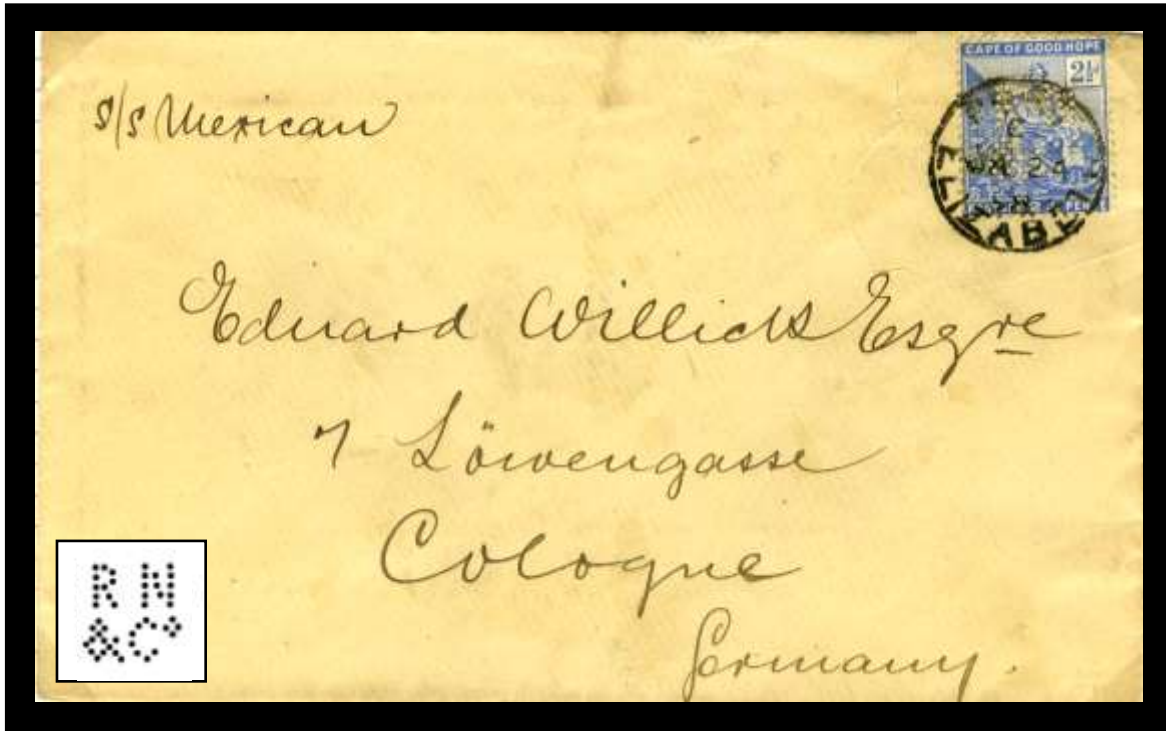 s/s Mexican
CAPE OF GOOD HOPE
2½
C
24
ELIZABETH
Eduard Willicks Esqre
7 Löwengasse
Cologne
Germany.
R N
&Co